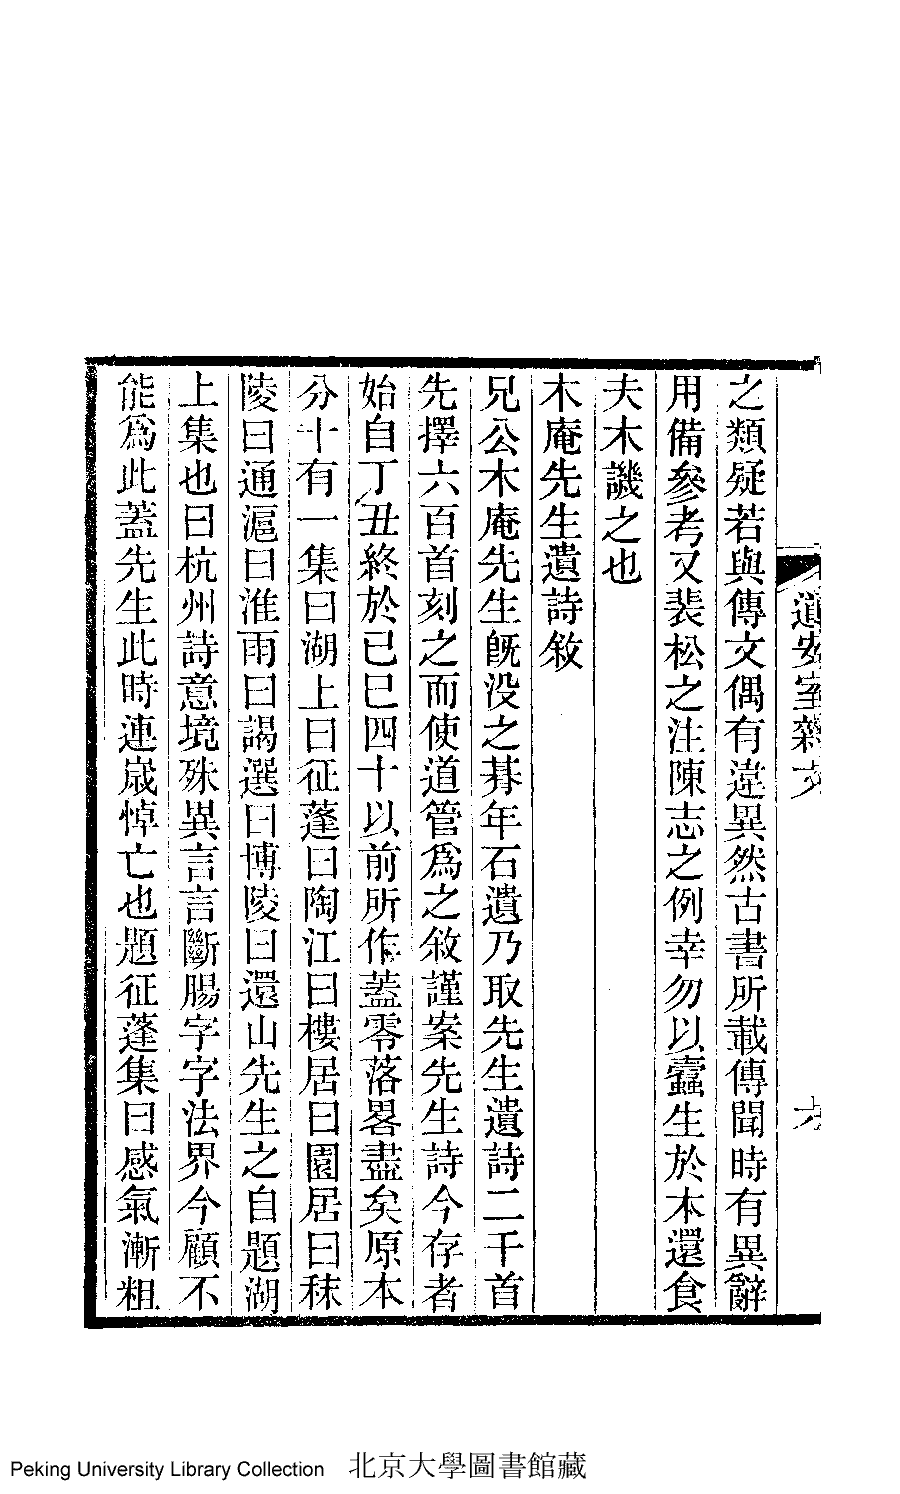 道安室雜文
六
之類疑若與傳文偶有違異然古書所載傳聞時有異辭
用備參考又裴松之注陳志之例幸勿以蠹生於本還食
夫木譏之也
木庵先生遺詩敘
兄公木庵先生旣没之朞年石遺乃取先生遺詩二千首
先擇六百首刻之而使道管爲之敘謹案先生詩今存者
始自丁丑終於已巳四十以前所作蓋零落畧盡矣原本
分十有一集曰湖上曰征蓬曰陶江曰樓居曰園居曰秣
陵曰通滬曰淮雨曰謁選曰博陵曰還山先生之自題湖
上集也曰杭州詩意境殊異言言斷腸字字法界今顧不
能爲此蓋先生此時連嵗悼亡也題征蓬集曰感氣漸粗
Peking University Library Collection 北京大學圖書館藏